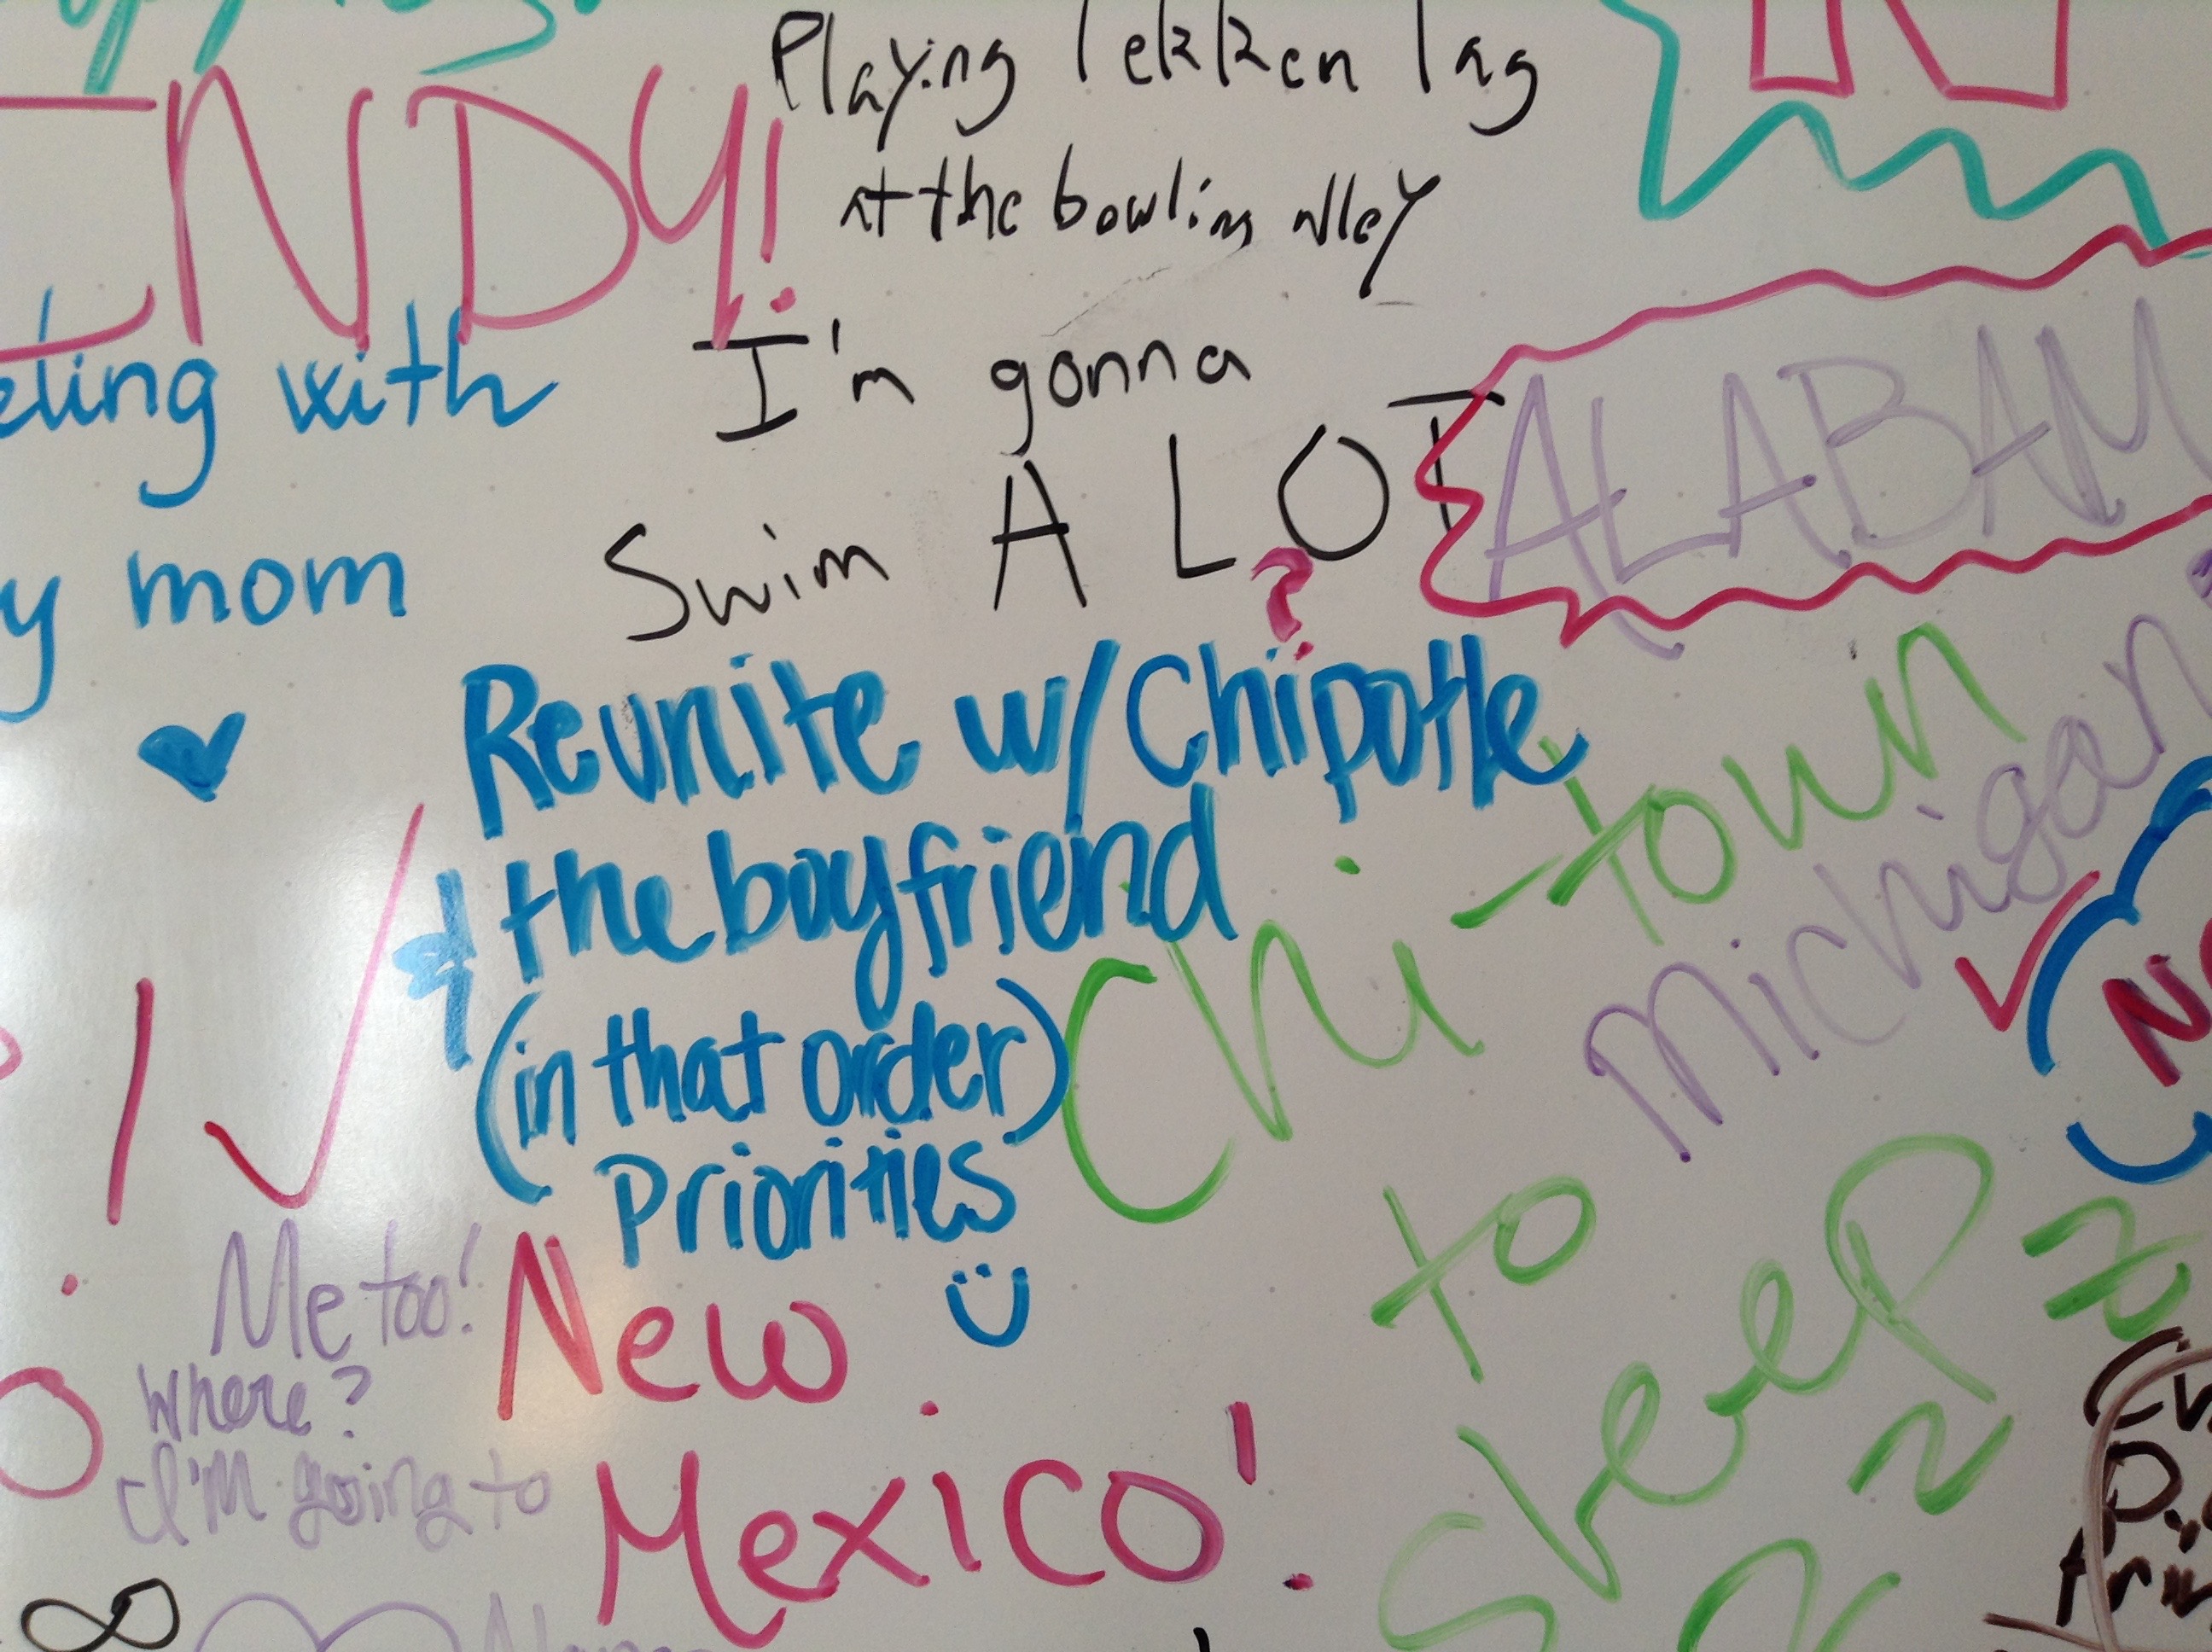 INDY!
Playing Tekken Tag
at the bowling alley
I'm gonna
Swim A LOT
?
ALABAM
with
mom
Reunite w/ Chipotle
& the boyfriend
(in that order)
Priorities
Chi-town
Michigan
to
Sleep
Z
Z
Z
Me too!
Where?
I'M going to
New
Mexico!